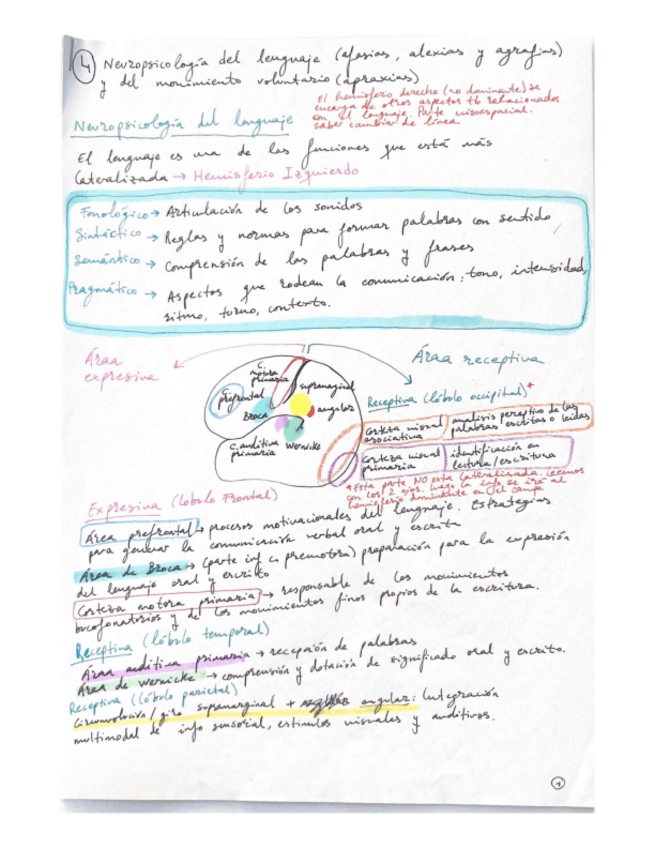 4 Neuropsicología del lenguaje (afasias, alexias y agrafias)
y del movimiento voluntario (apraxias)
El hemisferio derecho (no dominante) se
encarga de otros aspectos tb relacionados
con el lenguaje. Parte visoespacial.
saber cambiar de línea
Neuropsicología del lenguaje
El lenguaje es una de las funciones que está más
lateralizada → Hemisferio Izquierdo
Fonológico → Articulación de los sonidos
Sintáctico → Reglas y normas para formar palabras con sentido
Semántico → Comprensión de las palabras y frases
Pragmático → Aspectos que rodean la comunicación: tono, intensidad,
ritmo, turno, contexto.
Área
expresiva
Área receptiva
C.
motora
primaria
supramarginal
C. prefrontal
angular
Broca
Wernicke
C. auditiva
primaria
Receptiva (lóbulo occipital)*
Corteza visual
asociativa
analisis perceptivo de las
palabras escritas o leídas
Corteza visual
primaria
identificación en
lectura/escritura
*Esta parte NO esta lateralizada. Leemos
con los 2 ojos. luego la info se irá al
hemisferio dominante en
Expresiva (lobulo Frontal)
Área prefrontal → procesos motivacionales del lenguaje. Estrategias
para generar la comunicación verbal oral y escrita
Área de Broca → (parte inf premotora) preparación para la expresión
del lenguaje oral y escrito
Corteza motora primaria → responsable de los movimientos
bucofonatorios y de los movimientos finos propios de la escritura.
Receptiva (lóbulo temporal)
Área auditiva primaria → recepción de palabras
Área de Wernicke → comprensión y dotación de significado oral y escrito.
Receptiva (lóbulo parietal)
Circunvolución/giro supramarginal + angular: Integración
multimodal de info sensorial, estimulos visuales y auditivos.
1